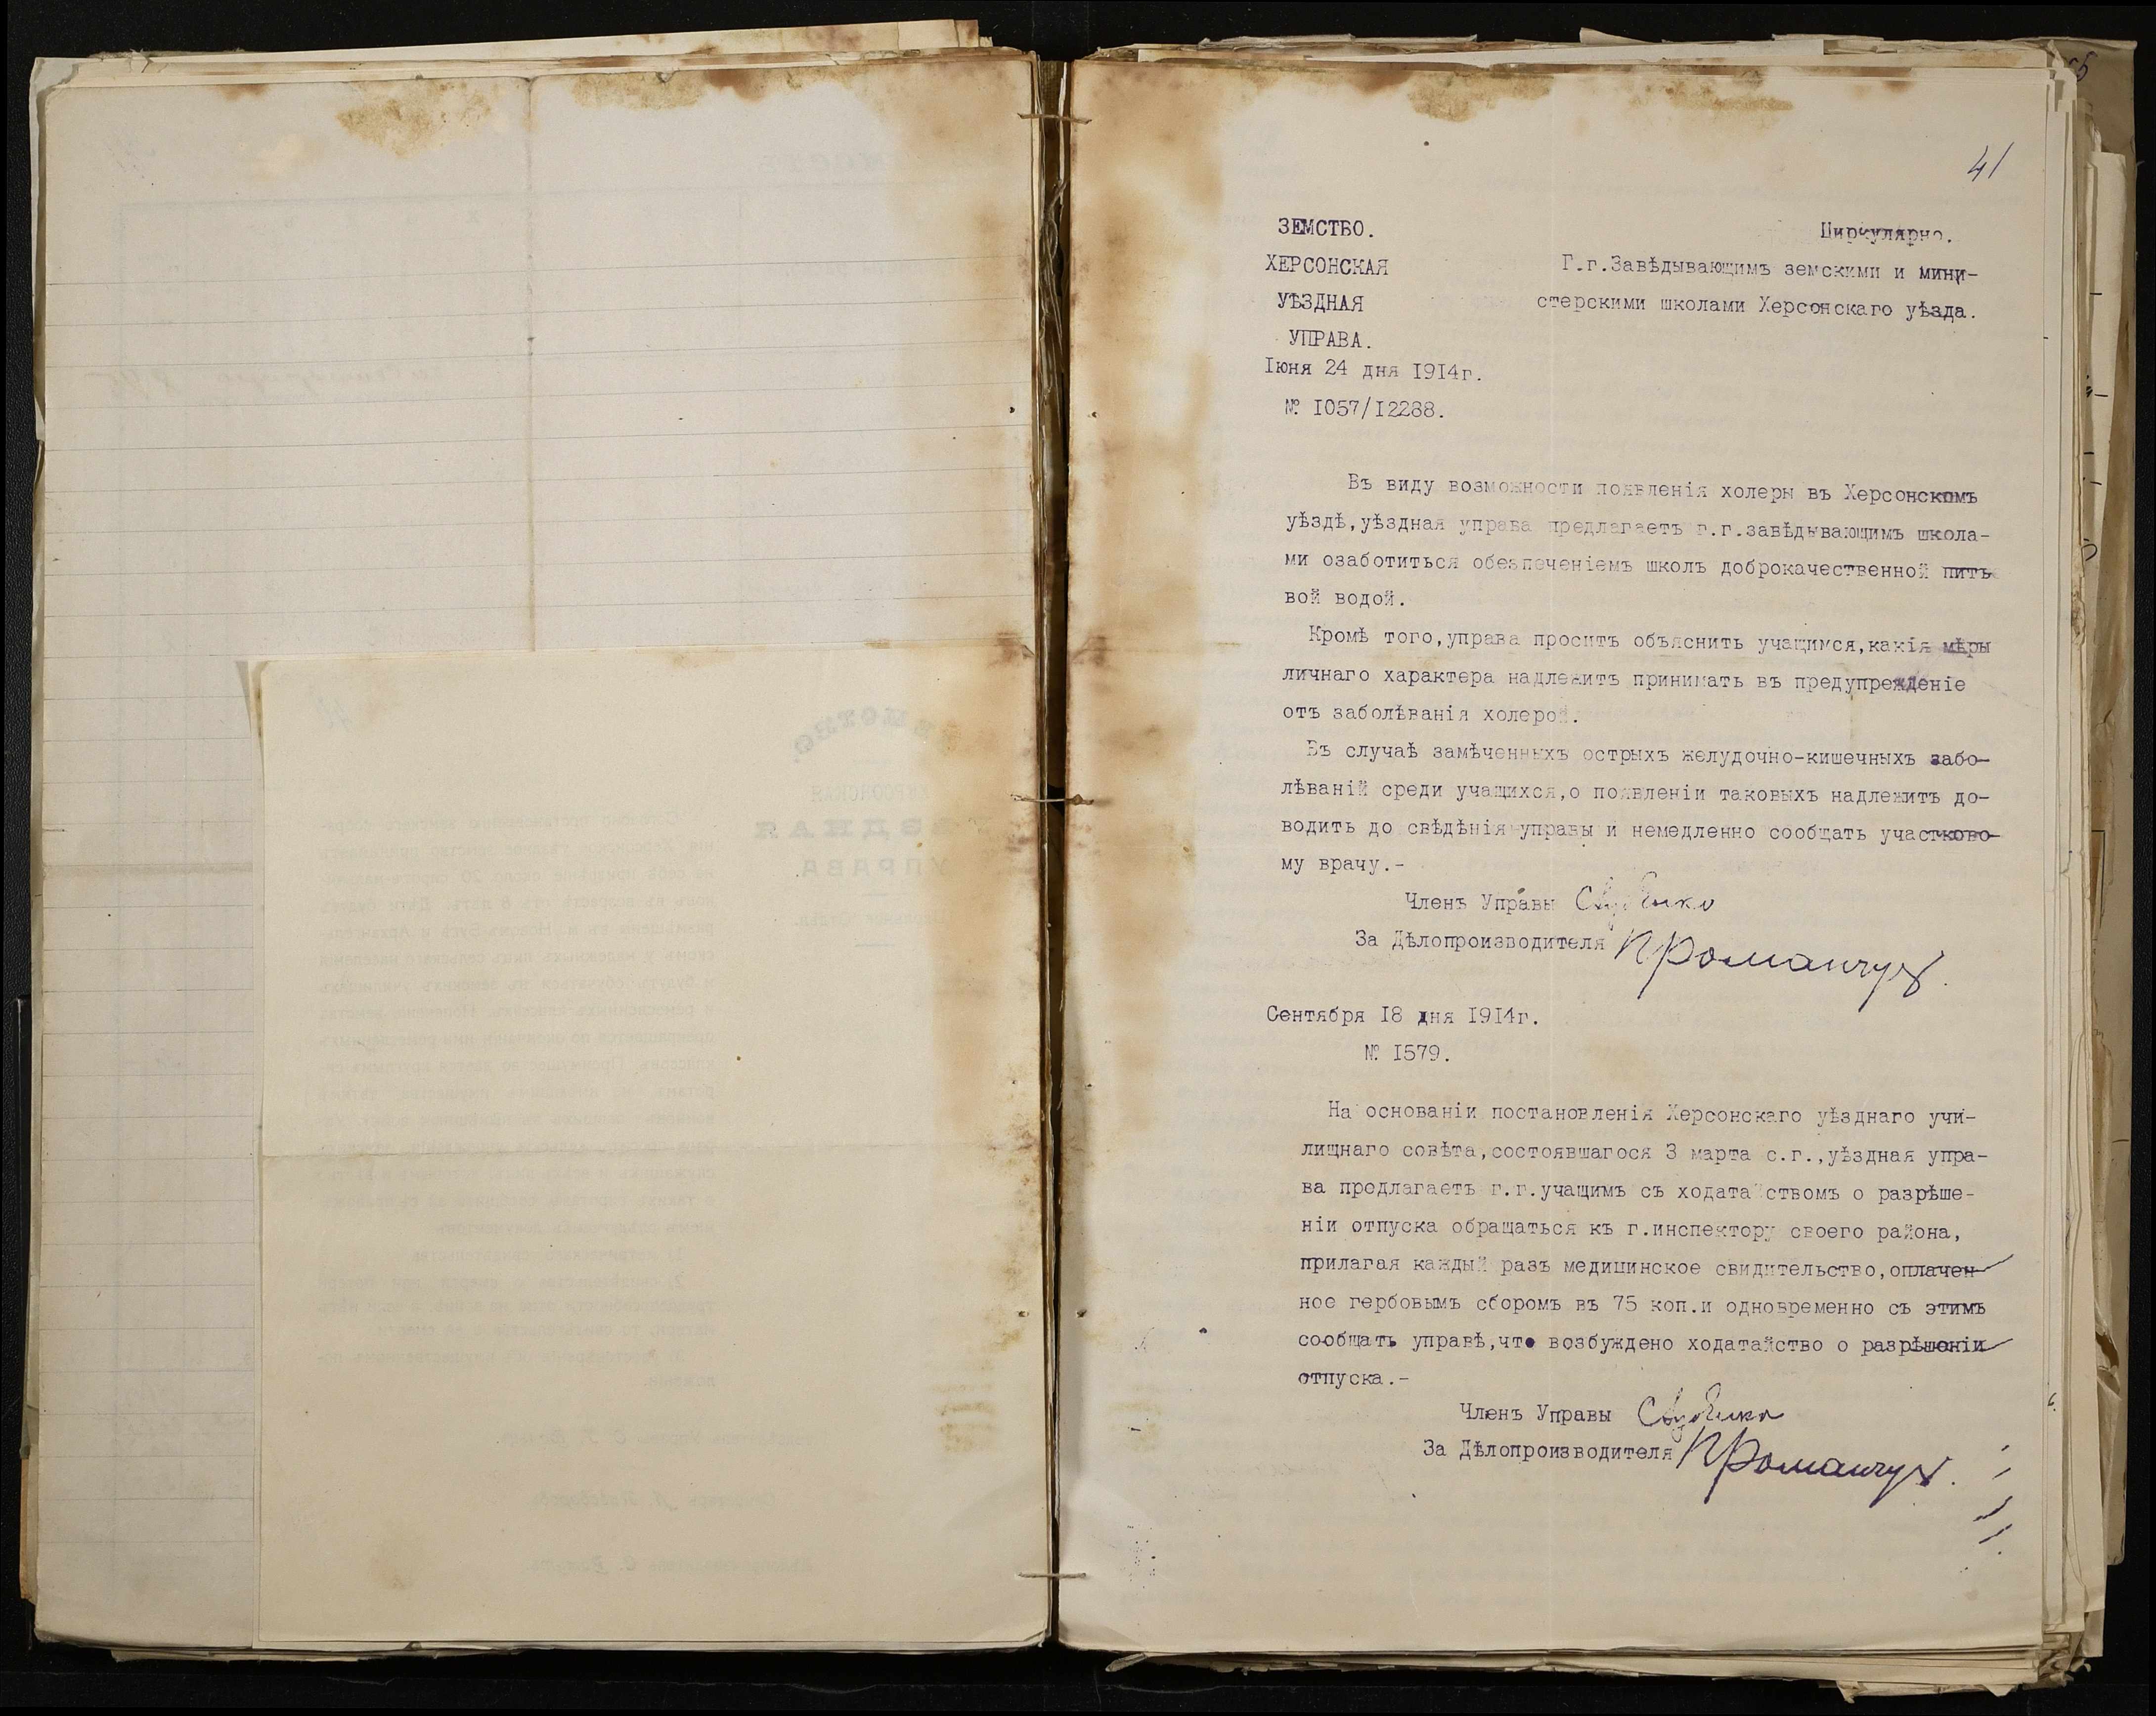 41
ЗЕМСТВО.
Циркулярно.
ХЕРСОНСКАЯ
Г.г.Завѣдывающимъ земскими и мини-
УѢЗДНАЯ
стерскими школами Херсонскаго уѣзда.
УПРАВА.
Iюня 24 дня I9I4г.
№ I057/I2288.
Въ виду возможности появленія холеры въ Херсонскомъ
уѣздѣ,уѣздная управа предлагаетъ г.г.завѣдывающимъ школа-
ми озаботиться обезпеченіемъ школъ доброкачественной пить
вой водой.
Кромѣ того,управа проситъ объяснить учащимся,какія мѣры
личнаго характера надлежитъ принимать въ предупрежденіе
отъ заболѣванія холерой.
Въ случаѣ замѣченныхъ острыхъ желудочно-кишечныхъ забо-
лѣваній среди учащихся,о появленіи таковыхъ надлежитъ до-
водить до свѣдѣнія управы и немедленно сообщать участково-
му врачу.-
Членъ Управы
За Дѣлопроизводителя П Романчук.
Сентября I8 дня I9I4г.
№ I579.
На основаніи постановленія Херсонскаго уѣзднаго учи-
лищнаго совѣта,состоявшагося 3 марта с.г.,уѣздная упра-
ва предлагаетъ г.г.учащимъ съ ходатайствомъ о разрѣше-
ніи отпуска обращаться къ г.инспектору своего района,
прилагая каждый разъ медицинское свидительство,оплачен-
ное гербовымъ сборомъ въ 75 коп.и одновременно съ этимъ
сообщать управѣ,что возбуждено ходатайство о разрѣшеніи
отпуска.-
Членъ Управы
За Дѣлопроизводителя П Романчук.